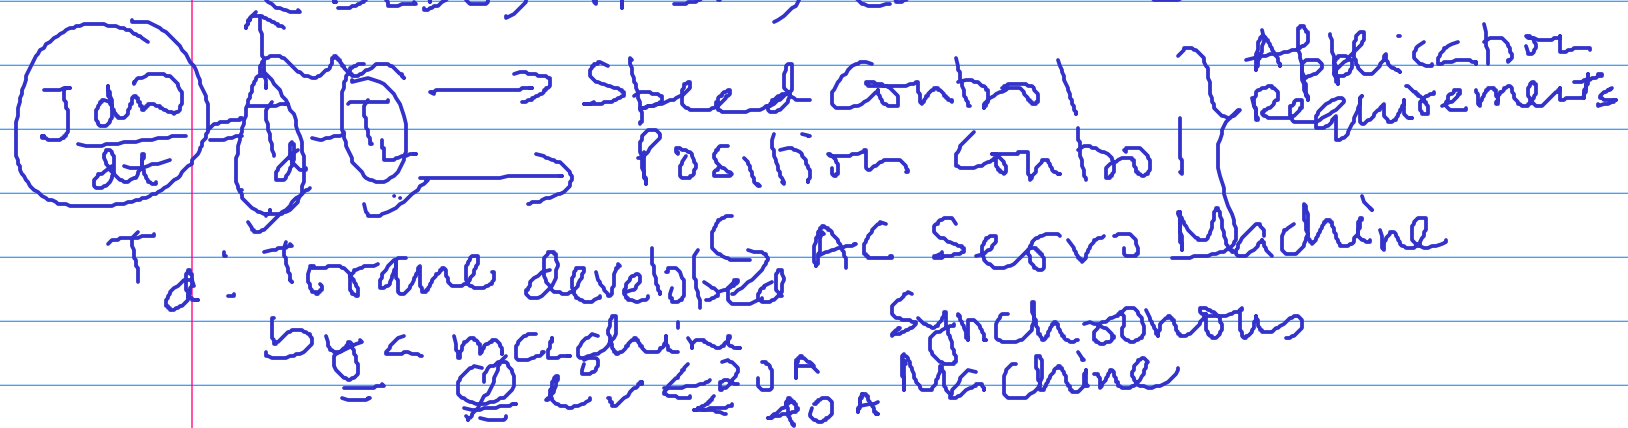 J dω/dt = Td - TL → Speed Control
→ Position Control
Application Requirements
↳ AC Servo Machine
Td : Torque developed
by a machine
Synchronous
Machine
20 A
40 A